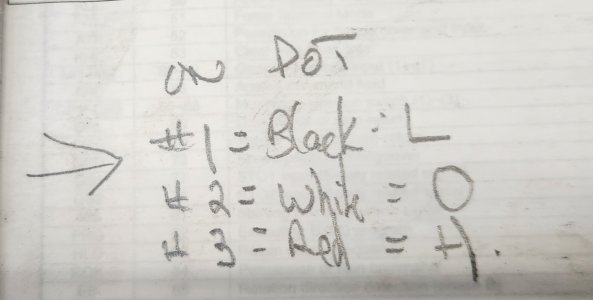 on DOT
#1 = Black : L
#2 = White = O
#3 = Red = H.